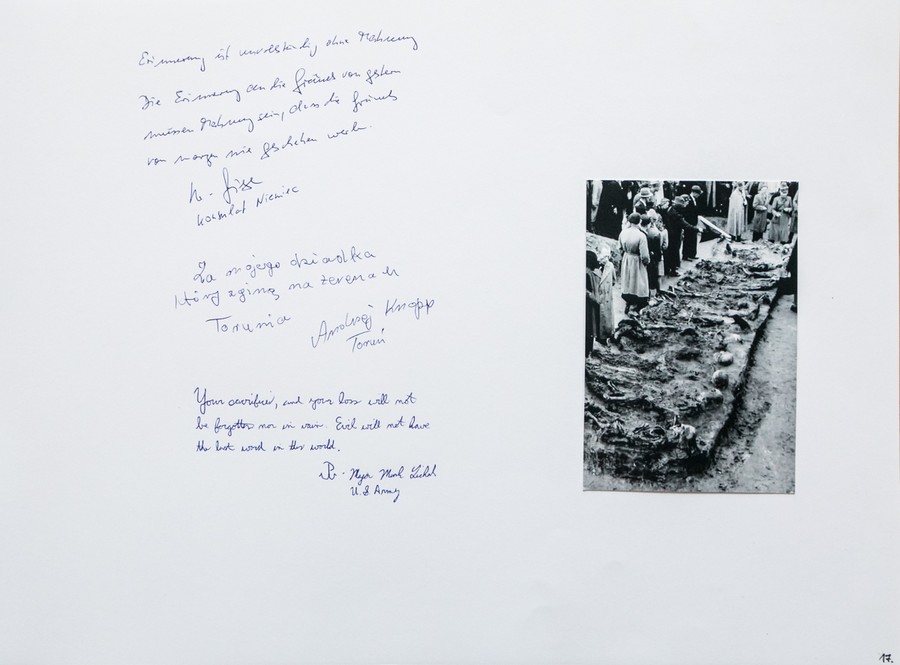 Erinnerung ist unvollständig ohne Mahnung
Die Erinnerung an die Gräuel von gestern
müssen Mahnung sein, dass die Gräuel
von morgen nie geschehen werden.
Konsulat Niemiec
Za mojego dziadka
który zginął na terenach
Torunia
Andrzej Knapp
Toruń
Your sacrifice, and your loss will not
be forgotten nor in vain. Evil will not have
the last word in this world.
Major Mark
U.S Army
17.